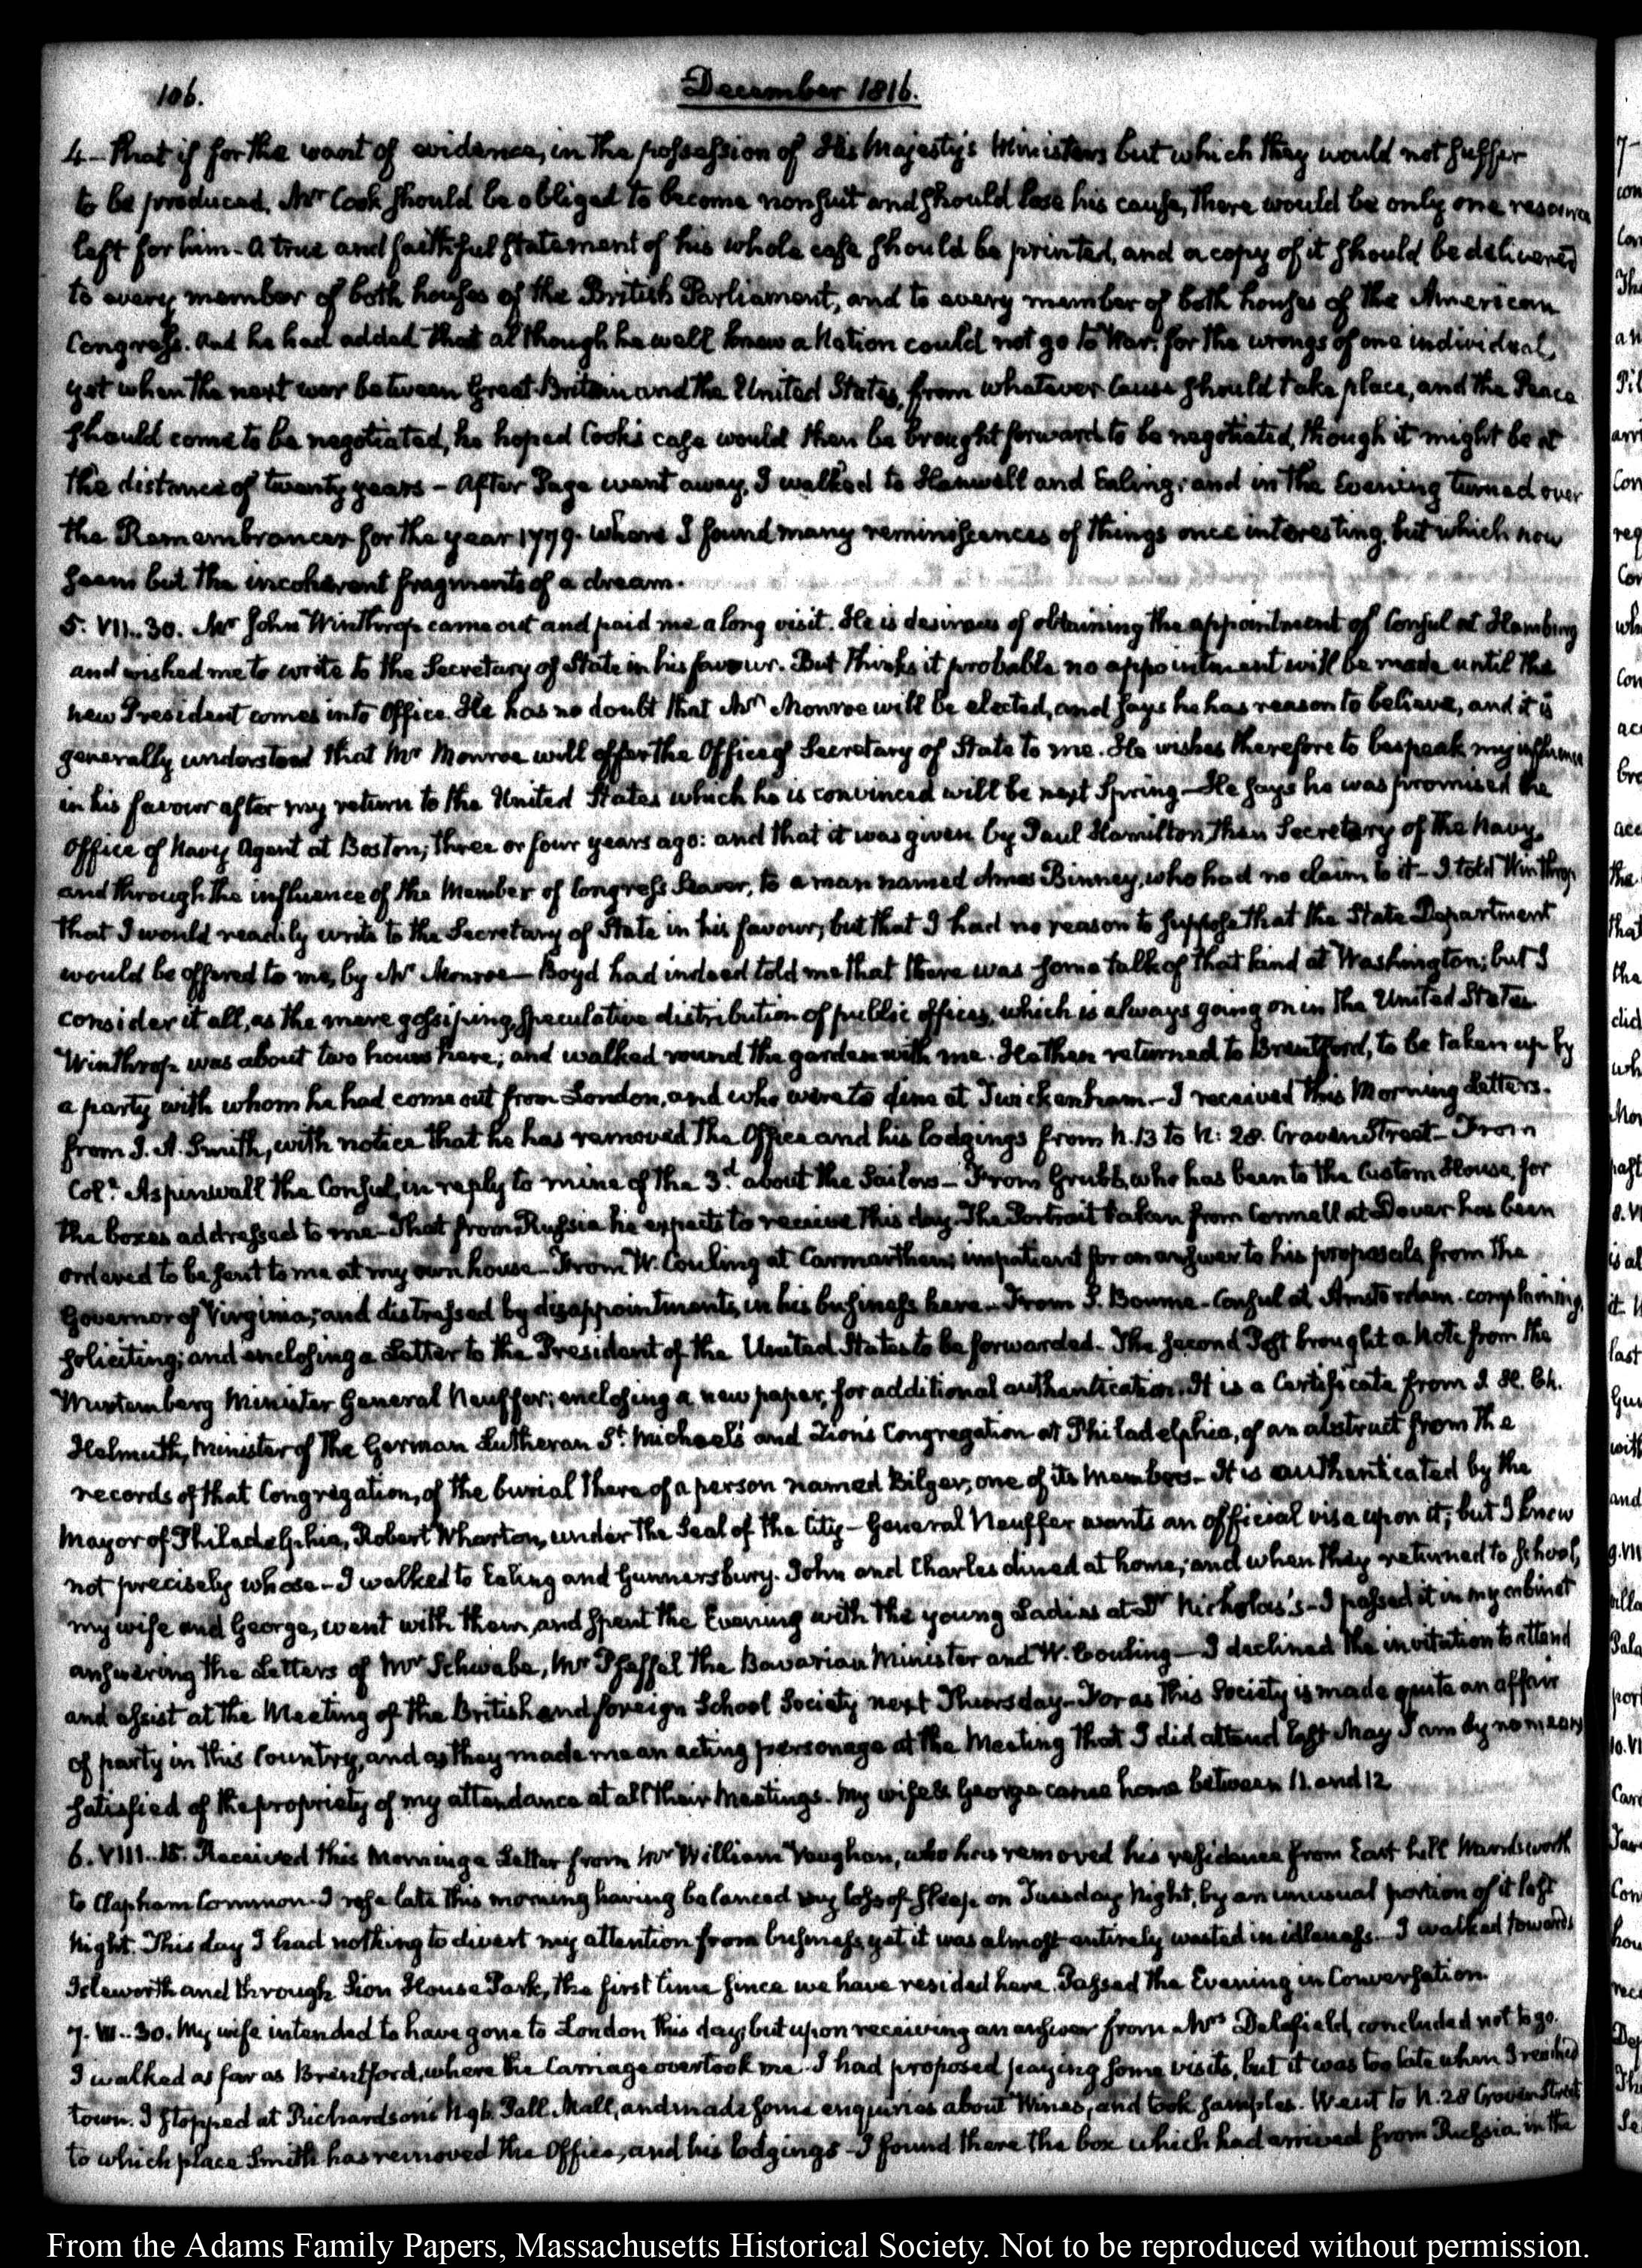 106.
December 1816.
4- That if for the want of evidence, in the possession of His Majesty's Ministers but which they would not suffer
to be produced, Mr Cook should be obliged to become nonsuit and should lose his cause, there would be only one resource
left for him- A true and faithful statement of his whole case should be printed, and a copy of it should be delivered
to every member of both houses of the British Parliament, and to every member of both houses of the American
Congress. And he had added that although he well knew a Nation could not go to War, for the wrongs of one individual,
yet when the next war between Great-Britain and the United States, from whatever cause should take place, and the Peace
should come to be negotiated, he hoped Cook's case would then be brought forward to be negotiated, though it might be at
the distance of twenty years - After Page went away, I walked to Hanwell and Ealing; and in the Evening turned over
the Remembrancer for the year 1779. where I found many reminiscences of things once interesting, but which now
seem but the incoherent fragments of a dream.
5. VII..30. Mr John Winthrop came out and paid me a long visit. He is desirous of obtaining the appointment of Consul at Hamburg
and wished me to write to the Secretary of State in his favour. But thinks it probable no appointment will be made until the
new President comes into Office. He has no doubt that Mr Monroe will be elected, and says he has reason to believe, and it is
generally understood that Mr Monroe will offer the Office of Secretary of State to me. He wishes therefore to bespeak my influence
in his favour after my return to the United States which he is convinced will be next Spring - He says he was promised the
Office of Navy Agent at Boston; three or four years ago: and that it was given by Paul Hamilton, then Secretary of the Navy,
and through the influence of the Member of Congress Seaver, to a man named Amos Binney, who had no claim to it - I told Winthrop
that I would readily write to the Secretary of State in his favour; but that I had no reason to suppose that the State Department
would be offered to me, by Mr Monroe - Boyd had indeed told me that there was some talk of that kind at Washington; but I
consider it all, as the mere gossiping, speculative distribution of public offices, which is always going on in the United States.
Winthrop was about two hours here; and walked round the garden with me. He then returned to Brentford, to be taken up by
a party with whom he had come out from London, and who were to dine at Twickenham - I received this Morning Letters.
from J. A. Smith, with notice that he has removed the Office and his lodgings from N. 13 to N: 28. Craven Street - From
Coll. Aspinwall the Consul, in reply to mine of the 3d. about the Sailors - From Grubb, who has been to the Custom House, for
the boxes addressed to me - That from Russia he expects to receive this day - The Portrait taken from Connell at Dover has been
ordered to be sent to me at my own house - From W. Couling at Carmarthen; impatient for an answer to his proposals from the
Governor of Virginia; and distressed by disappointments, in his business here - From S. Bourne - Consul at Amsterdam - complaining,
soliciting; and enclosing a Letter to the President of the United States to be forwarded - The second Post brought a Note from the
Wurtemberg Minister General Neuffer; enclosing a new paper, for additional authentication. It is a Certificate from J. H. Ch.
Helmuth, Minister of the German Lutheran St. Michael's and Zion's Congregation at Philadelphia, of an abstract from the
records of that Congregation, of the burial there of a person named Bilger, one of its Members - It is authenticated by the
Mayor of Philadelphia, Robert Wharton, under the Seal of the City - General Neuffer wants an official visa upon it; but I know
not precisely whose - I walked to Ealing and Gunnersbury. John and Charles dined at home; and when they returned to School,
my wife and George, went with them, and spent the Evening with the young Ladies at Dr Nicholas's - I passed it in my cabinet
answering the Letters of Mr Schwabe, Mr Pfeffel the Bavarian Minister and W. Couling - I declined the invitation to attend
and assist at the Meeting of the British and foreign School Society next Thursday - For as this Society is made quite an affair
of party in this Country, and as they made me an acting personage at the Meeting that I did attend last May I am by no means
satisfied of the propriety of my attendance at all their Meetings. My wife & George came home between 11. and 12
6. VIII..15. Received this Morning a Letter from Mr William Vaughan, who has removed his residence from East hill Wandsworth
to Clapham Common - I rose late this morning having balanced my loss of sleep on Tuesday Night, by an unusual portion of it last
Night. This day I had nothing to divert my attention from business, yet it was almost entirely wasted in idleness. - I walked towards
Isleworth and through Sion House Park, the first time since we have resided here. Passed the Evening in Conversation.
7. VII..30. My wife intended to have gone to London this day; but upon receiving an answer from Mrs Delafield, concluded not to go.
I walked as far as Brentford, where the Carriage overtook me. I had proposed paying some visits, but it was too late when I reached
town. I stopped at Richardson's N 96. Pall Mall, and made some enquiries about Wines, and took samples. Went to N. 28 Craven Street
to which place Smith has removed the Office, and his lodgings - I found there the box which had arrived from Russia in the
From the Adams Family Papers, Massachusetts Historical Society. Not to be reproduced without permission.